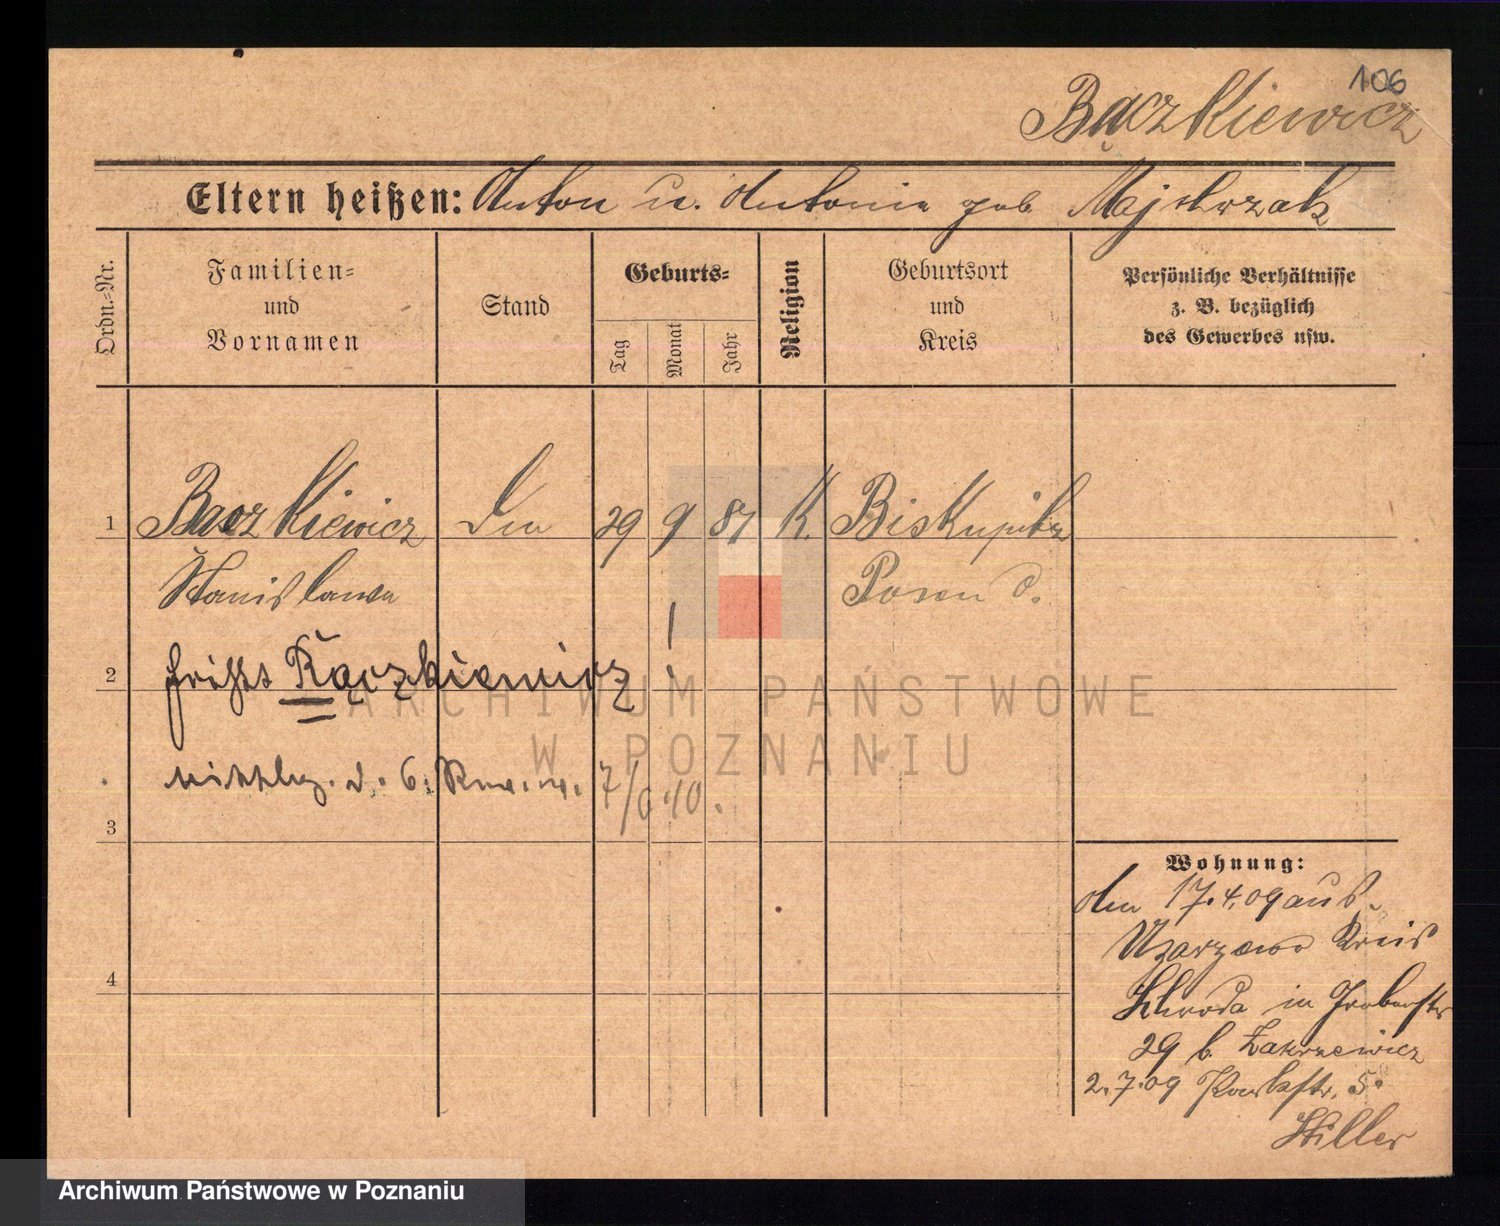 106
Bączkiewicz
Eltern heißen: Anton u. Antonie geb. Majchrzak
Ordn.=Nr.
Familien=
und
Vornamen
Stand
Geburts=
Tag
Monat
Jahr
Religion
Geburtsort
und
Kreis
Persönliche Verhältnisse
z. B. bezüglich
des Gewerbes usw.
1 Baczkiewicz 29 9 87 K. Biskupitz
Stanislawa Posen O.
heißt Rączkiewicz !
2
d. 6. Rev. v. 7/6.10.
3
4
Wohnung:
den 17.4.09 aus
Uzarzewo Kreis
Schroda in Grabenstr
29 b. Zakrzewicz
2.7.09 5.
Hiller
ARCHIWUM PAŃSTWOWE
W POZNANIU
Archiwum Państwowe w Poznaniu